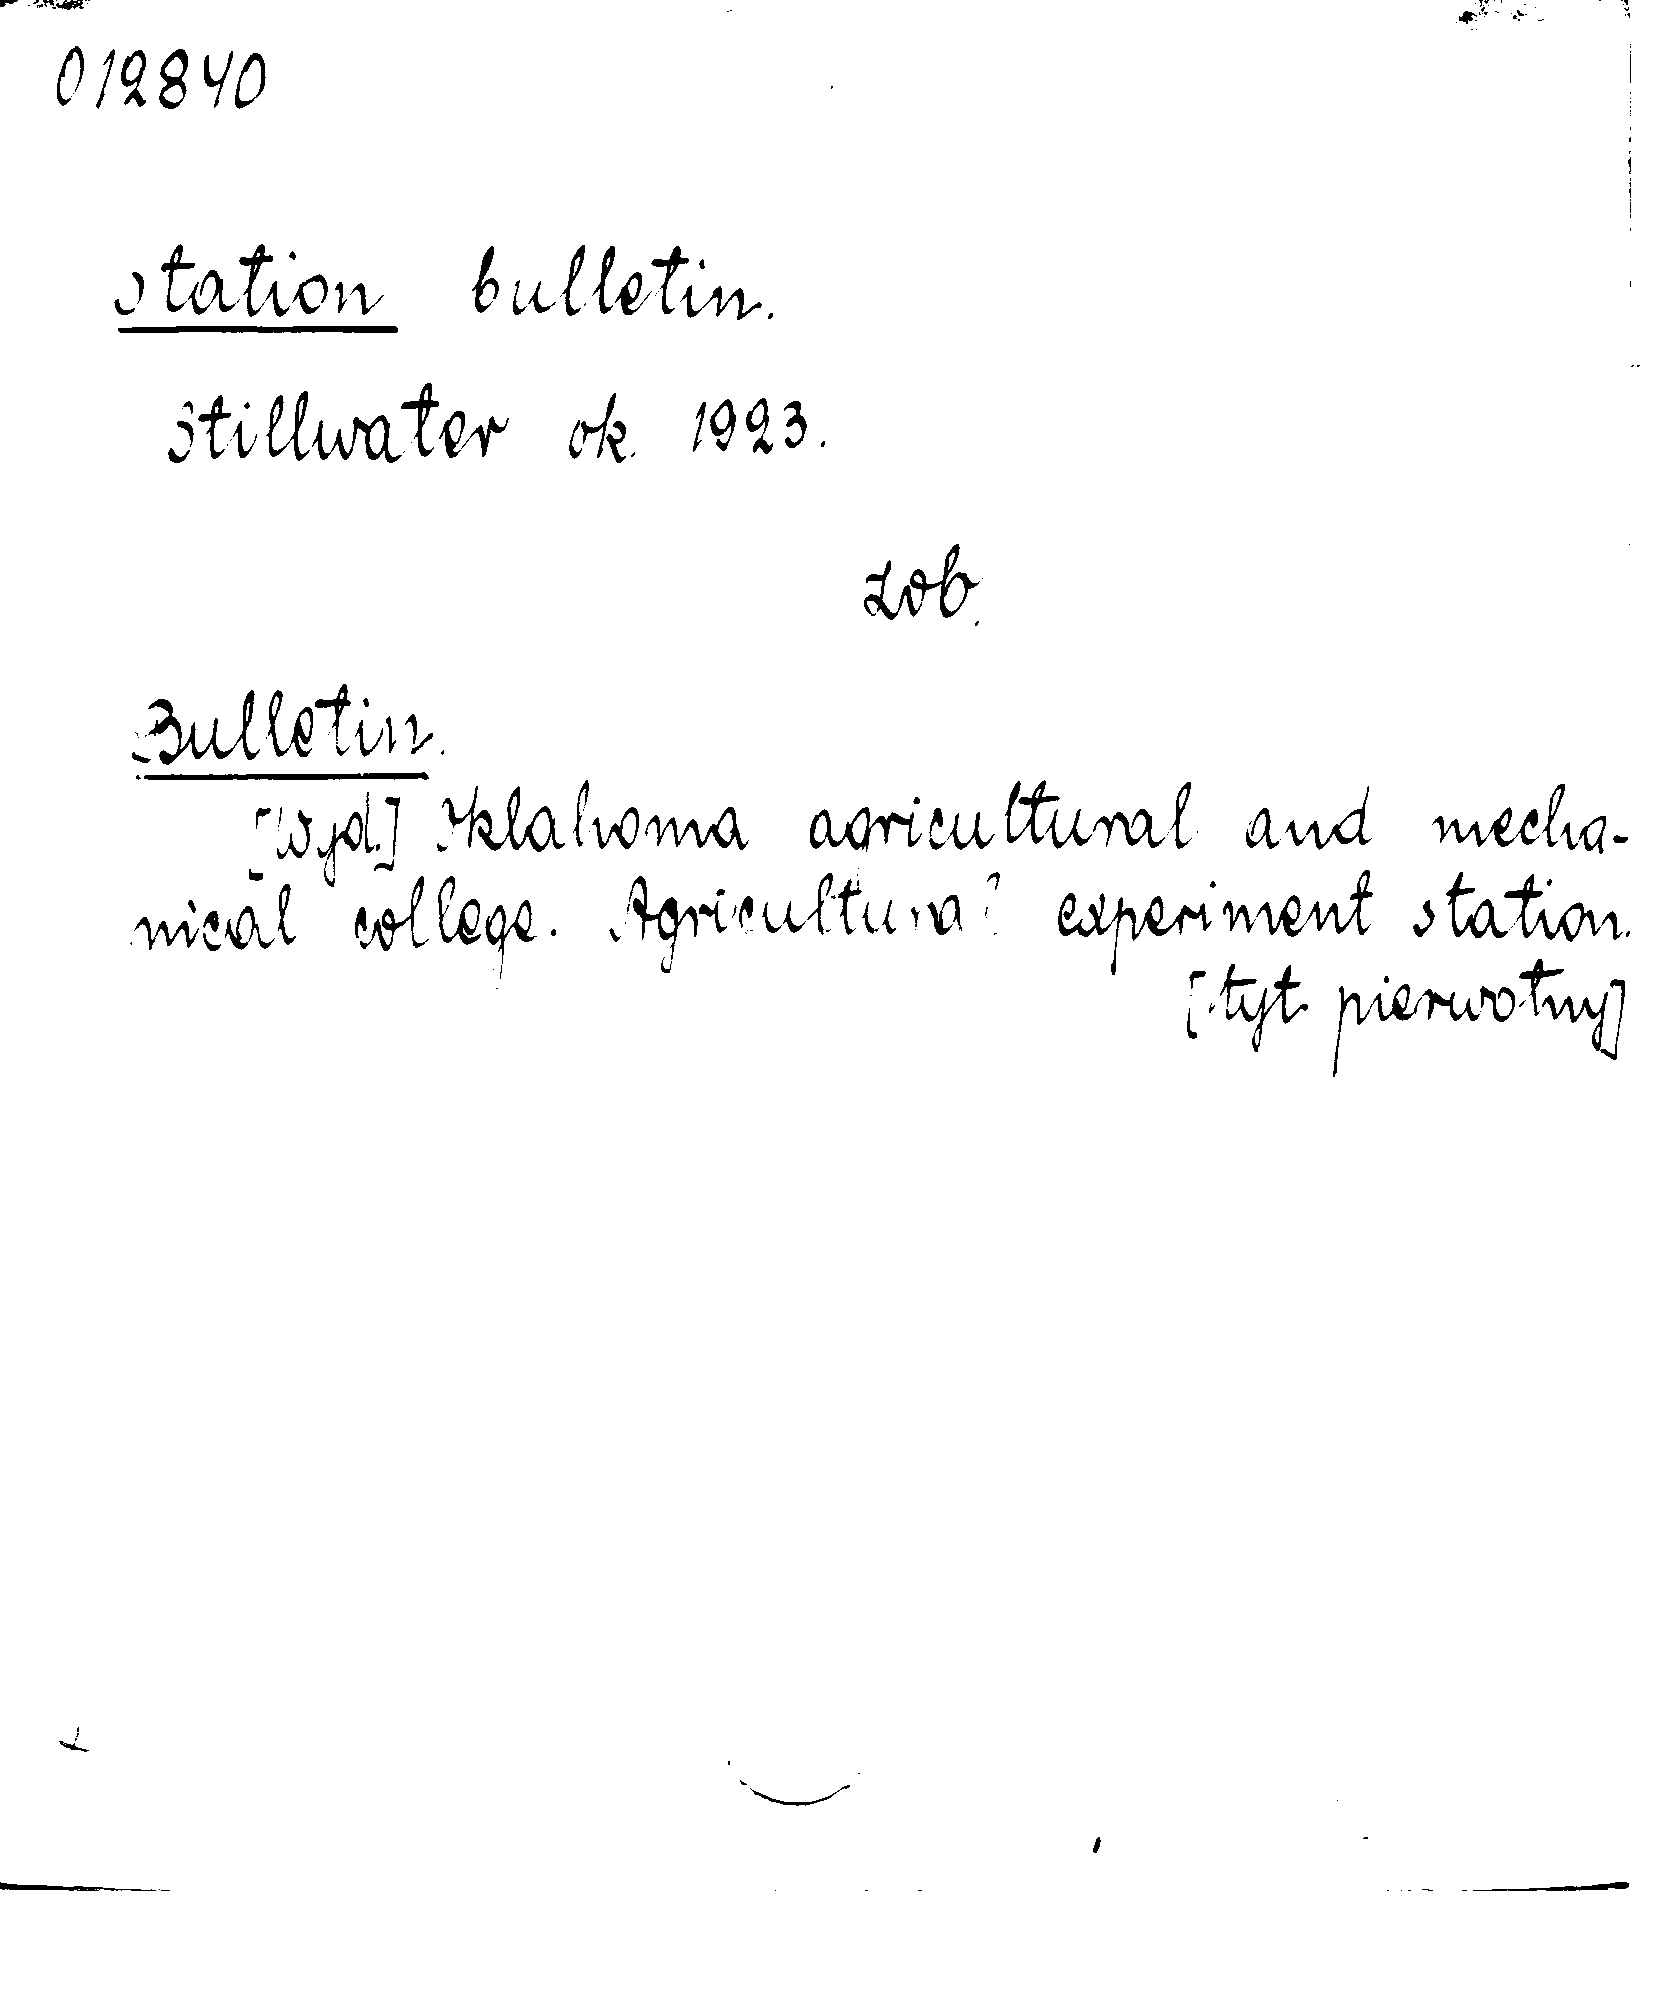 012840
Station bulletin.
Stillwater ok. 1923.
zob.
Bulletin.
[Wyd.] Oklahoma agricultural and mecha-
nical college. Agricultural experiment station.
[tyt. pierwotny]